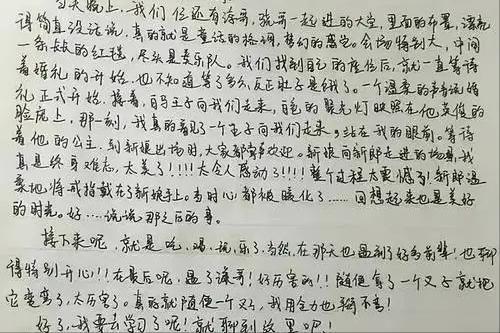 当天晚上,我们位还有海哥,强哥一起进的大堂,里面的布置,漂亮
得简直没话说,真的就是童话的格调,梦幻的感觉。会场特别大,中间
一条长长的红毯,尽头是交乐队。我们找到自己的座位后,就一直等待
着婚礼的开始,也不知道等了多久,反正肚子是饿了。一个温柔的声音说婚
礼正式开始,接着,白马王子向我们走来,白色的聚光灯映照在他英俊的
脸庞上,那一刻,我真的看见了一个王子向我们走来。站在我的眼前。等待
着他的公主,到新娘出场时,大家都掌欢迎。新娘向新郎走进的场景,我
真是终身难忘,太美了!!!!太令人感动了!!!!整个过程太震憾了!新郎温
柔地将戒指戴在了新娘手上。当时心都被暖化了……回想起来也是美好
的时光。好……说说那之后的事。
接下来呢,就是吃、喝、玩、乐了。当然,在那天也遇到了好多前辈!也聊
得特别开心!!在最后呢,遇了海哥!好厉害的!!随便拿了一个叉子就把
它变弯了,太厉害了。真的就随便一个叉子,我用全力也掰不弯!
好了,我要去学习了呢!就聊到这里吧!